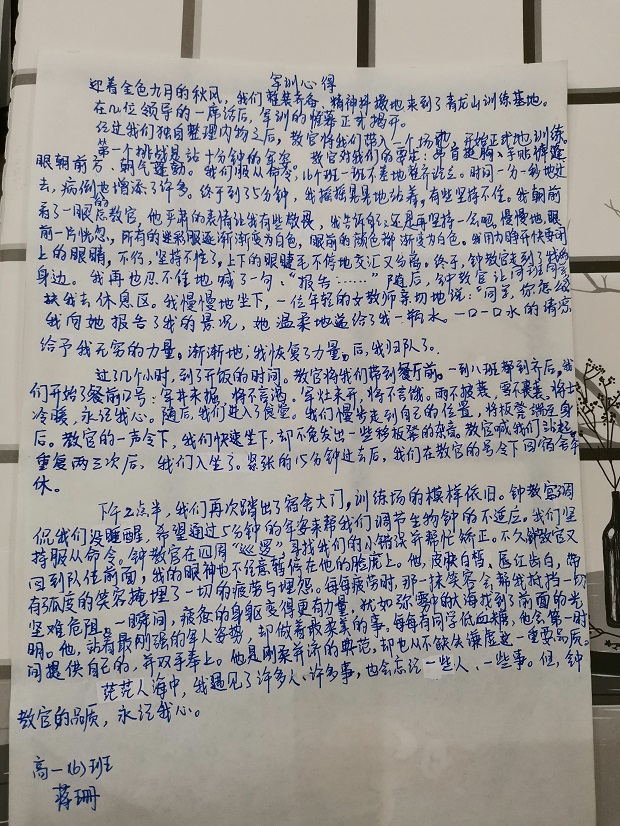 军训心得
迎着金色九月的秋风，我们整装齐备，精神抖擞地来到了青龙山训练基地。
在几位领导的一席话后，军训的帷幕正式揭开。
经过我们独自整理内物之后，教官将我们带入一个场地，开始正式地训练。
第一个挑战是站十分钟的军姿。教官对我们的要求：昂首挺胸、手贴裤缝
眼朝前方、朝气蓬勃。我们服从命令，16个班一班不差地整齐站立。时间一分一秒地过
去，病倒也增添了许多。终于到了5分钟，我摇摇晃晃地站着，有些坚持不住。我朝前
看了一眼的教官，他平常的表情让我有些敬畏，我告诉自己还是再坚持一会吧。慢慢地，眼
前一片恍惚，所有的迷彩服逐渐渐变为白色，眼前的颜色都渐变为白色。我用力睁开快要闭
上的眼睛，不行，坚持不住了，上下的眼睫毛不停地交汇又分离。终于，钟教官走到了我的
身边。我再也忍不住地喊了一句、"报告……"随后，钟教官让同班同学
扶我去休息区。我慢慢地坐下，一位年轻的女教师亲切地说："同学，你怎么
我向她报告了我的景况，她温柔地递给了我一瓶水。一口一口水的清凉
给予我无穷的力量。渐渐地，我恢复了力量，后，我归队了。
过了几个小时，到了开饭的时间。教官将我们带到餐厅前。一到八班都到齐后，我
们开始了餐前口号：军井未掘，将不言渴。军灶未开，将不言饿。雨不披蓑，雪不裹裘，将士
冷暖，永记我心。随后，我们进入了食堂。我们慢步走到自己的位置，将板凳端正身
后。教官的一声令下，我们快速坐下，却不免发出一些移板凳的杂音。教官喊我们站起。
重复两三次后，我们入坐了。紧张的15分钟过去后，我们在教官的号令下回宿舍午
休。
下午2点半，我们再次踏出了宿舍大门，训练场的模样依旧。钟教官调
侃我们没睡醒，希望通过5分钟的军姿来帮我们调节生物钟的不适应。我们坚
持服从命令。钟教官在四周"巡逻"，寻找我们的小错误并帮忙矫正。不久钟教官又
回到队伍前面，我的眼神也不住喜暂停在他的脸庞上。他，皮肤白皙、唇红齿白，带
有弧度的笑容掩埋了一切的疲劳与埋怨。每每疲劳时，那一抹笑容会帮我抵挡一切
坚难危阻。一瞬间，疲惫的身躯变得更有力量，犹如弥雾中的大海找到了前面的光
明。他，站着最刚强的军人姿势，却做着最柔美的事，每每有同学低血糖，他会第一时
间提供自己的，并双手奉上。他是刚柔并济的典范，却也从不缺失谦虚这一重要品质。
茫茫人海中，我遇见了许多人、许多事，也会忘记一些人、一些事。但，钟
教官的品质，永记我心。
高一（6）班
蒋珊